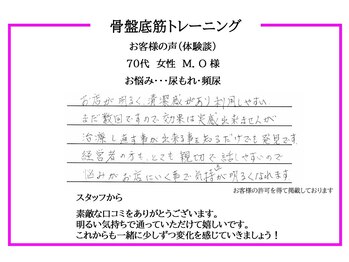 骨盤底筋トレーニング
お客様の声(体験談)
70代 女性 M.O様
お悩み・・・尿もれ・頻尿
お店が明るく、清潔感があり利用しやすい
まだ数回ですので効果は実感出来ませんが
治療し直す事が出来る事を知るだけでも発見です
経営者の方も、とても親切で話しやすいので
悩みがお店にいく事で気持が明るくなれます
お客様の許可を得て掲載しております
スタッフから
素敵な口コミをありがとうございます。
明るい気持ちで通っていただけて嬉しいです。
これからも一緒に少しずつ変化を感じていきましょう!